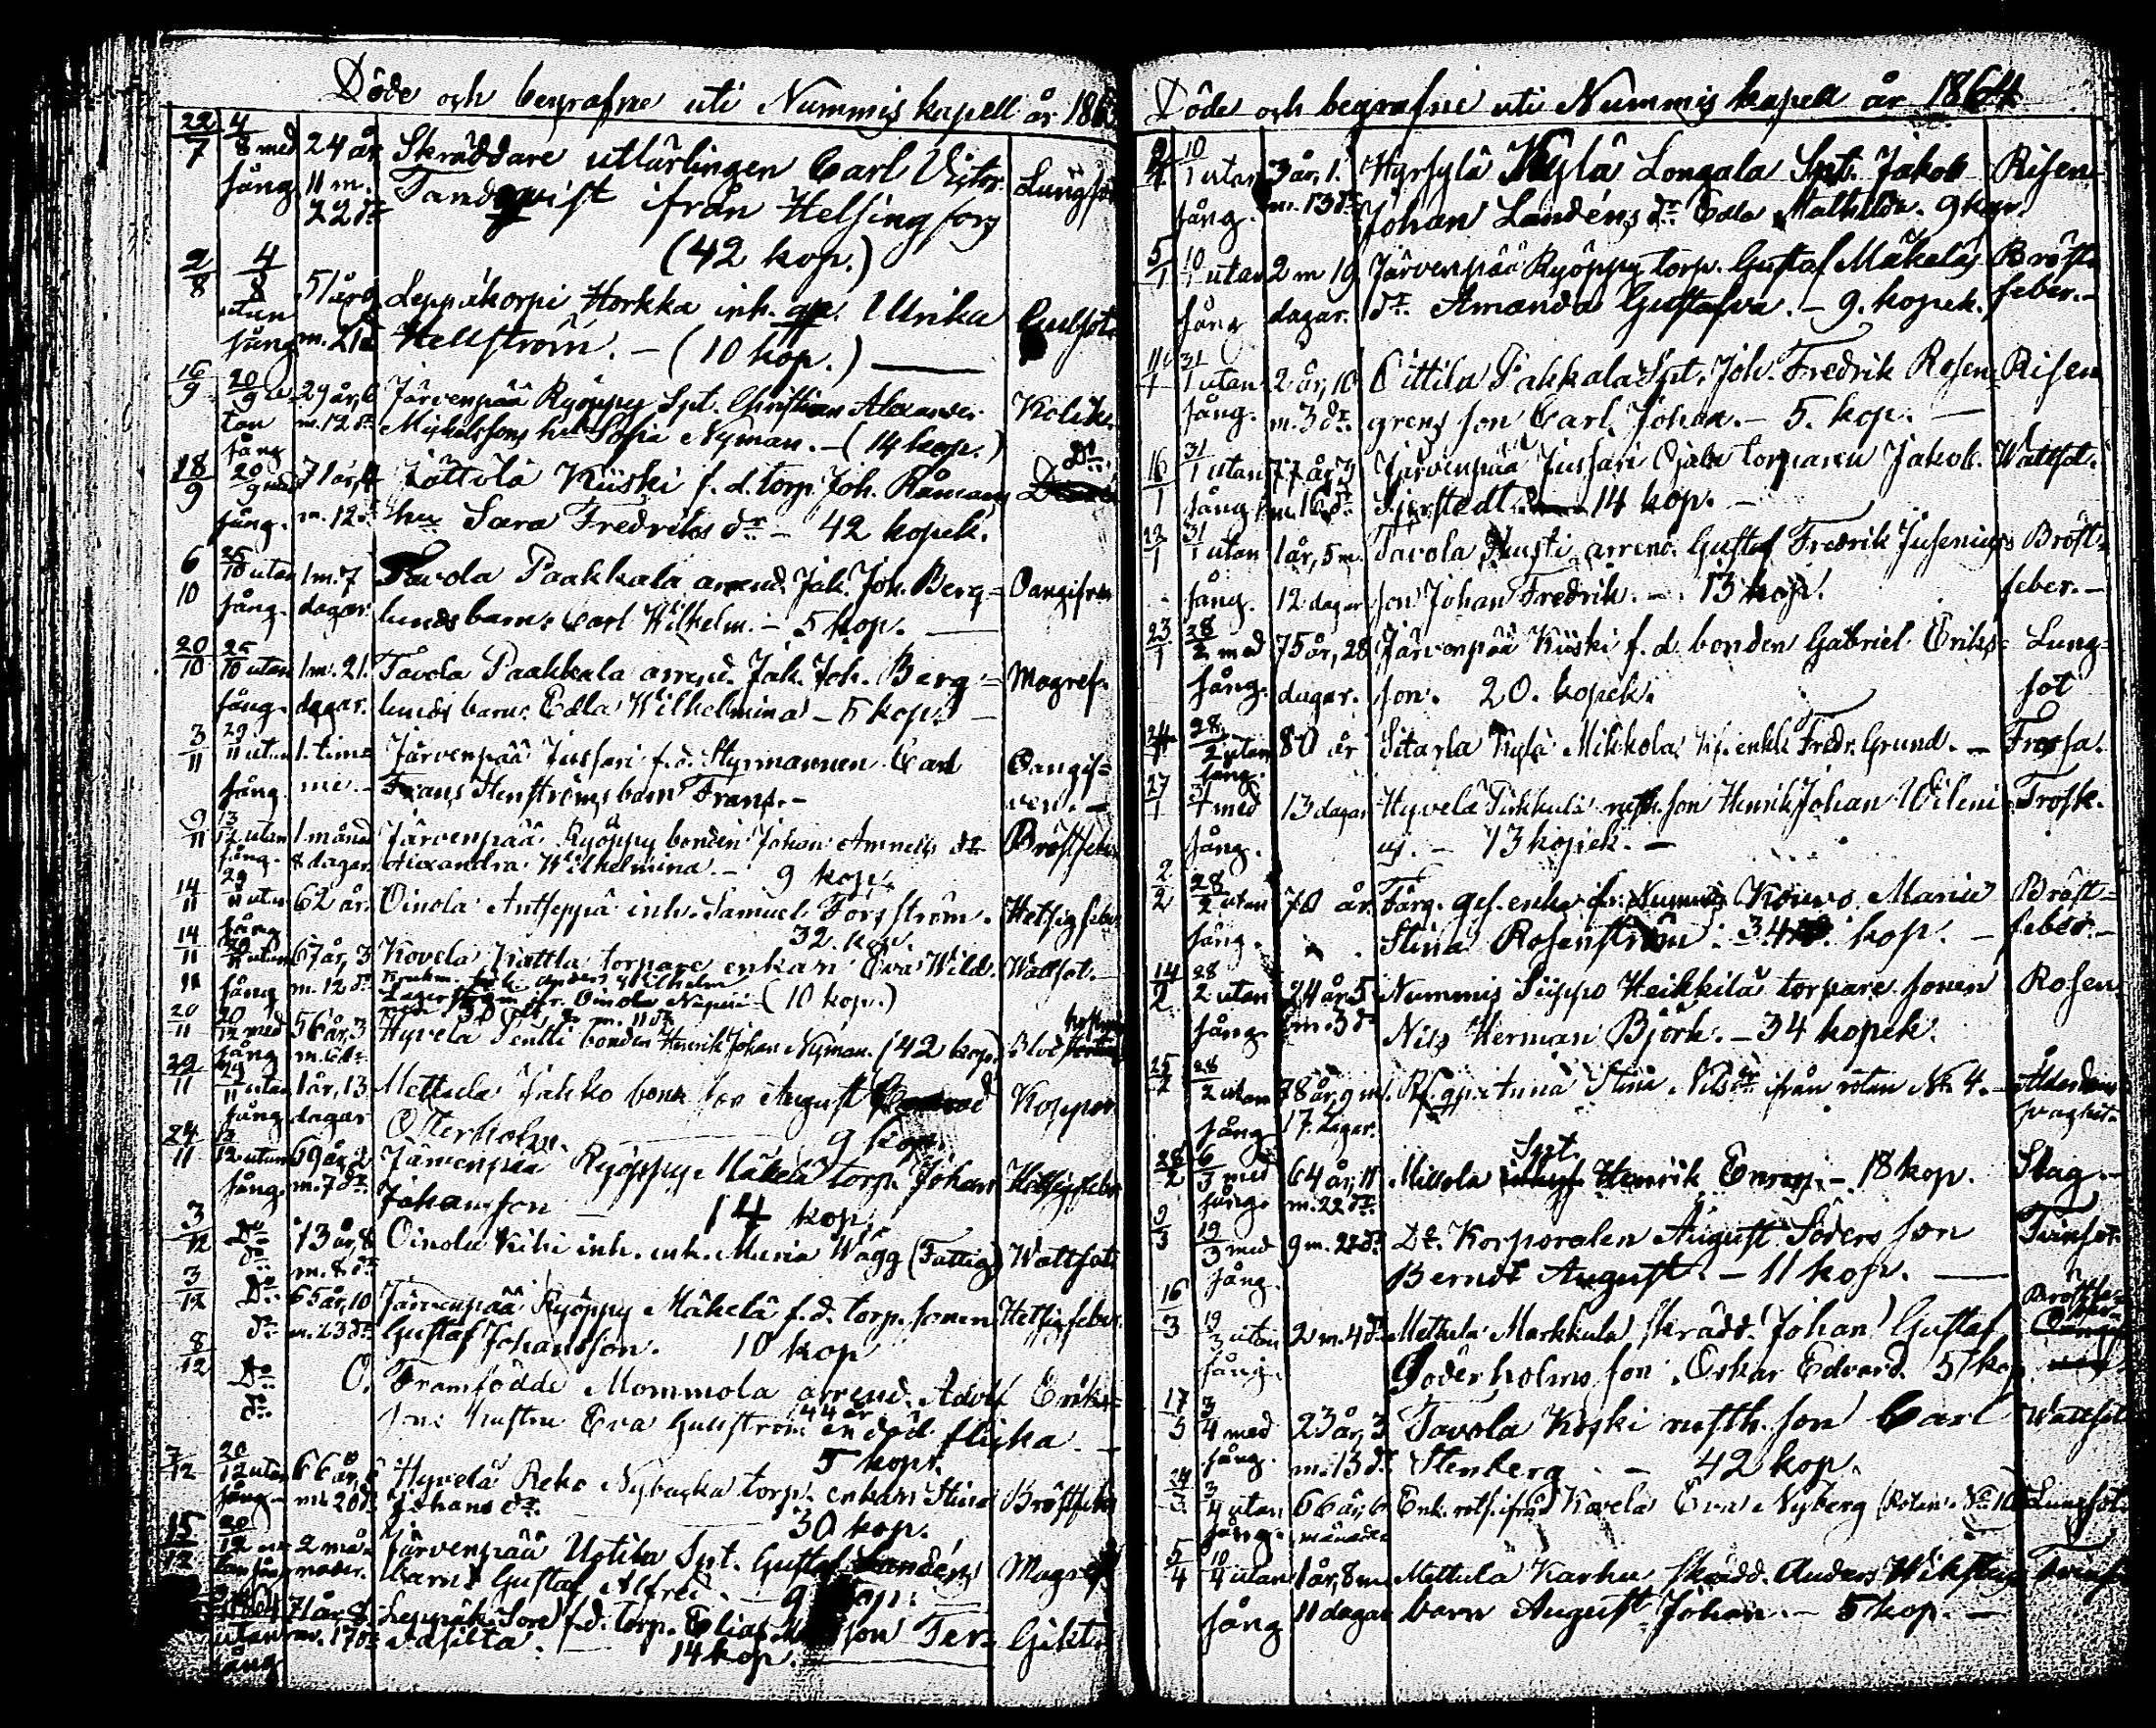 Döde och begrafne uti Nummis kapell år 186
22/7 4/8 med sång 24 år 11 m. 22 dr Skräddare utlärlingen Carl Victor Lungsot
Tandqvist ifrån Helsingfors
(42 kop.)
2/8 4/8 utan sång 51 år m. 21 d Leppäkorpi Horkka inh. gp. Ulrika Gulsot
Hellström. - (10 kop.)
16/9 20/9 utan sång 29 år, 6 m. 12 dr Järvenpää Ryöppy Spt. Christian Alexander Kolik.
Mickelssons hu Sofia Nyman. - (14 kop.)
18/9 20/9 med sång. 71 år, 4 m. 12 d Jättölä Kiiski f. d. torp. Joh. Råmans Do
hu Sara Fredriks dr - 42 kopek.
6/10 25/10 utan sång. 1 m. 7 dagar. Tavola Paakkala arrend. Jak. Joh. Berg= Oangifven
lunds barn: Carl Wilhelm. - 5 kop.
20/10 25/10 utan sång. 1 m. 21. dagar. Tavola Paakkala arrend. Jak. Joh. Berg= Magref.
lunds barn: Edla Wilhelmina - 5 kop. -
3/11 29/11 utan sång. 1. timme. - Järvenpää Jussari f. d. Styrmannen Carl Oangif=
Frans Henströms barn Frans. - ven. -
9/11 13/12 utan sång. 1 månad 8 dagar. Järvenpää Ryöppy bonden Johan Amnells dr Bröstfeber
Alexandra Wilhelmina. - 9 kop.
14/11 29/11 utan sång 62 år. Oinola Antseppä inh. Samuel Forsström. Hetsig feber
32. kop.
14/11 29/11 utan sång 67 år, 3 m. 12 dr Kovela Knuttla torpare enkan Eva Wild. Wattsot.
Lagerström fr. Oinola (10 kop.)
20/11 20/12 med sång 56 år, 3 m. 6 dr. Hyvelä Pentti bonden Henrik Johan Nyman. (42 kop.) Blod
22/11 29/11 utan sång 1 år, 13 dagar Mettula Jakko bond. son August Koppor.
Österholm. 9 kop.
24/11 13/12 utan sång 69 år, 2 m. 7 dr. Järvenpää Ryöppy Mäkelä torp. Johan Hetsig feber
Johansson - 14 kop.
3/12 Do do 73 år, 8 m. 8 dr Oinola Kihi inh. enk. Maria Wägg (Fattig) Wattsot.
3/12 Do do 65 år, 10 m. 23 dr Järvenpää Ryöppy Mäkelä f. d. torp. sonen Hetsig feber.
Gustaf Johansson. 10 kop
8/12 Do do O. Framfödde Mommola arrend. Adolf Eriks=
sons hustru Eva Gullström 44 år en död flicka -
5 kop.
7/12 20/12 utan sång - 66 år, 8 m. 20 d. Hyvelä Reko Nybacka torp. enkan Stina Bröstfeber
Johans dr. 30 kop.
15/12 20/12 utan sång 2 månader. Järvenpää Uotila Spt. Gustaf Landéns Magref
barn: Gustaf Alfred. - 9 kop.
1864 utan sång 71 år, 8 m. 17 dr Leppäk. Sore f. d. torp. Elias son Ter= Gikt
vasilta. - 14 kop.
Döde och begrafne uti Nummis kapell år 1864
4/1 10/1 utan sång. 3 år, 1. m. 13 dr Hyrsylä Kylä Longala Spt. Jakob Risen.
Johan Landéns dr Edla Mathilda. 9 kop.
5/1 10/1 utan sång 2 m 19 dagar. Järvenpää Ryöppy torp. Gustaf Mäkeläs Bröst=
dr. Amanda Gustafva. - 9. kopek. feber. -
11/1 31/1 utan sång. 2 år, 10 m. 3 dr. Oittila Pakkala Spt. Joh. Fredrik Rosen= Risen
grens son Carl Johan. - 5. kop. -
16/1 31/1 utan sång 77 år, 3 m. 16 dr. Järvenpää Jussari Ojala torparen Jakob. Wattsot.
Sjerstedt 14 kop. -
22/1 31/1 utan sång. 1 år, 5 m. 12 dagar Tavola Kusti arrend. Gustaf Fredrik Jusenius Bröst=
son Johan Fredrik. - 13 kop. feber. -
23/1 28/2 med sång. 75 år, 28 dagar. Järvenpää Kiiski f. d. bonden Gabriel Eriks= Lung=
son. 20. kopek. sot
24/1 28/2 utan sång. 80 år Sitarla Kylä Mikkola enkl. Fredr. Grund. - Frossa.
27/1 31/1 med sång. 13 dagar Hyvelä Pirkkulä rusth. son Henrik Johan Wileni= Trosk.
us. - 13 kopek. -
2/2 28/2 utan sång. 70 år. Färg. ges. enka fr. Nummis Kouvo Maria Bröst=
Stina Rosenström. 34 kop. - feber. -
14/2 28/2 utan sång. 24 år 5 m. 3 dr Nummis Siippo Heikkilä torpare sonen Rosen
Nils Herman Björk. - 34 kopek.
25/2 28/2 utan sång 78 år, 9 m. 17 dagar. Rf. gp. Anna Stina Nils dr ifrån roten No 4. - Ålderdoms
svaghet.
28/2 6/3 med sång. 64 år, 11 m. 22 dr. Millola Spt. Henrik Enrop. - 18 kop. Slag. -
9/3 19/3 med sång. 9 m. 22 dr. Dt. Korporalen August Söders son Tvinsot.
Berndt August. - 11 kop. -
16/3 19/3 utan sång. 2 m. 4 dr. Mettula Markkula skrädd. Johan Gustaf Bröstfe=
ber
Söderholms son: Oskar Edvard. 5 kop
17/3 3/4 med sång. 23 år, 3 m. 13 dr. Tavola Koski rusth. son Carl Wattsot
Stenberg. - 42 kop.
24/3 3/4 utan sång. 66 år, 6 månader Enk. rotf. ifrån Kovela Eva Nyberg (Roten No 10) Lungsot.
5/4 10/4 utan sång 1 år, 8 m. 11 dagar Mettula Karhu skrädd. Anders Wikstens Tvins
barn August Johan. - 5 kop. -